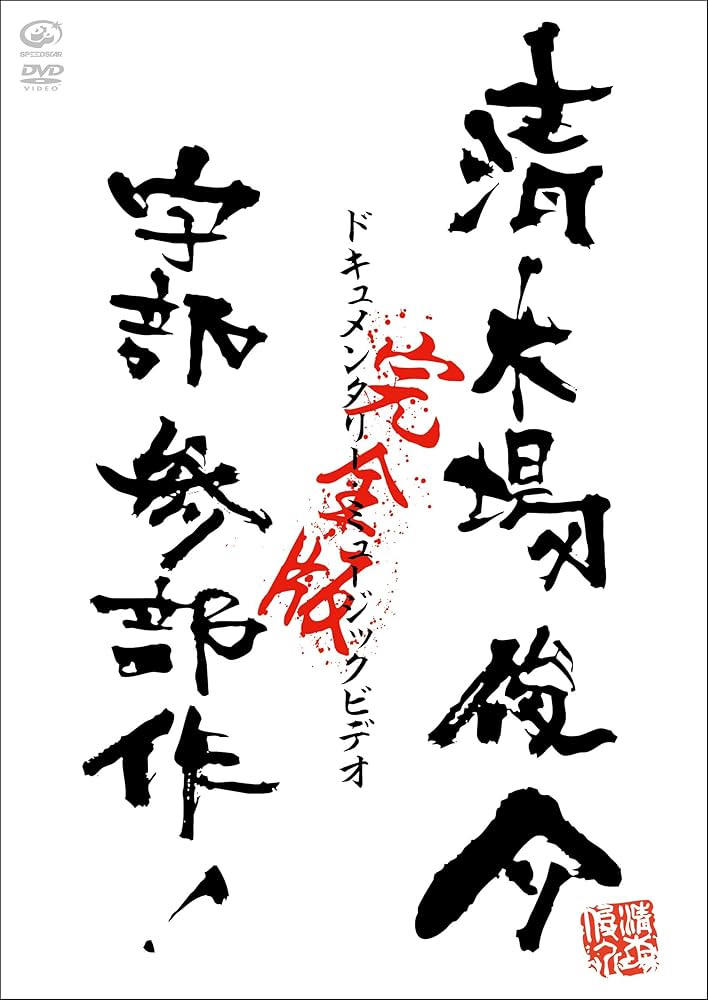 SPEEDSTAR
DVD
VIDEO
清木場俊介
ドキュメンタリー・ミュージックビデオ
完全版
宇部参部作!
清木場俊介